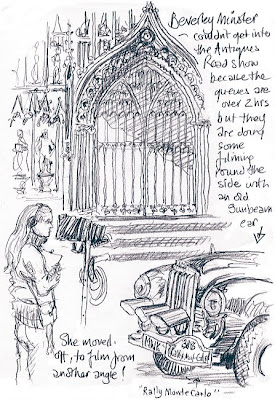 Beverley Minster
~ couldn't get into
the Antiques
Road show
because the
queues are
over 2 hrs
but they
are doing
some
filming
round the
side with
an old
Sunbeam
car
She moved
off, to film from
another angle!
"Rally Monte Carlo"